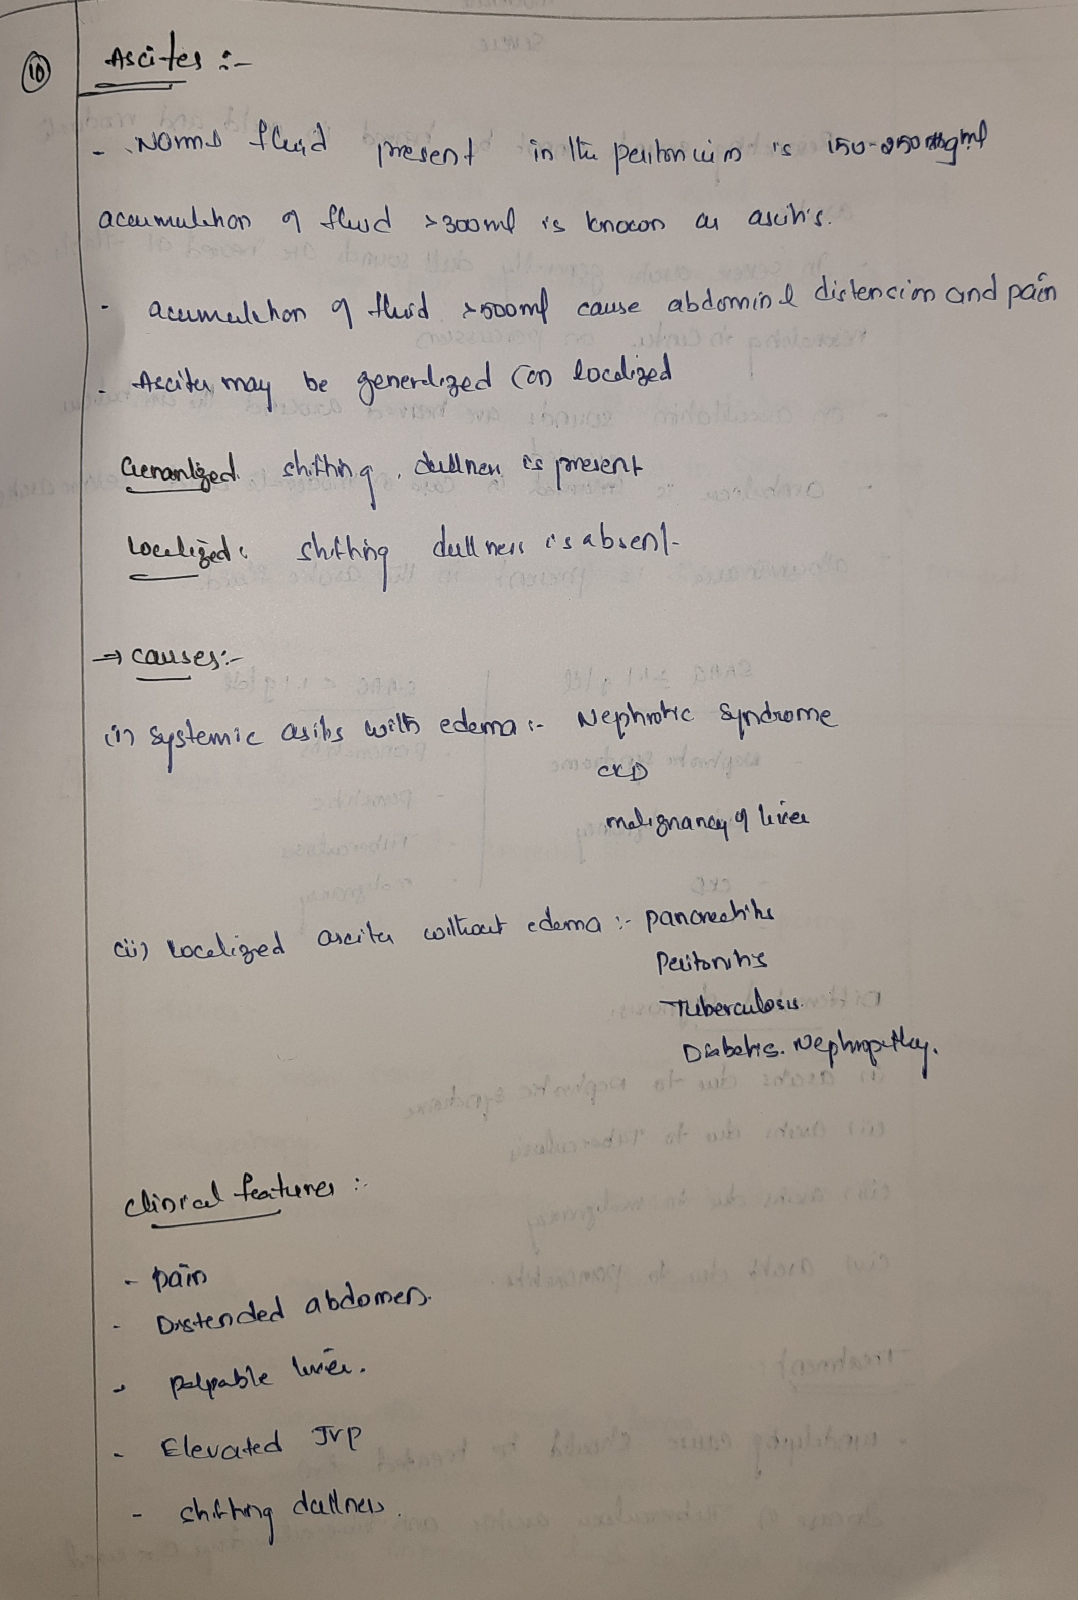 10
Ascites :-
- Normal fluid present in the peritoneum is 150-250 ml
accumulation of fluid >300ml is known as ascitis.
- accumulation of fluid >500ml cause abdominal distencion and pain
- Ascites may be generalized (or) localized
Genanlized shifting dullness is present
Localized: shifting dullness is absent-
→ causes:-
(i) Systemic asitis with edema :- Nephrotic Syndrome
CKD
malignancy of liver
(ii) Localized ascites without edema :- pancreatitis
Peritonitis
Tuberculosis.
Diabetis. Nephropathy.
clinical features :-
- pain
- Distended abdomen.
- palpable liver.
- Elevated JVP
- shifting dullness.